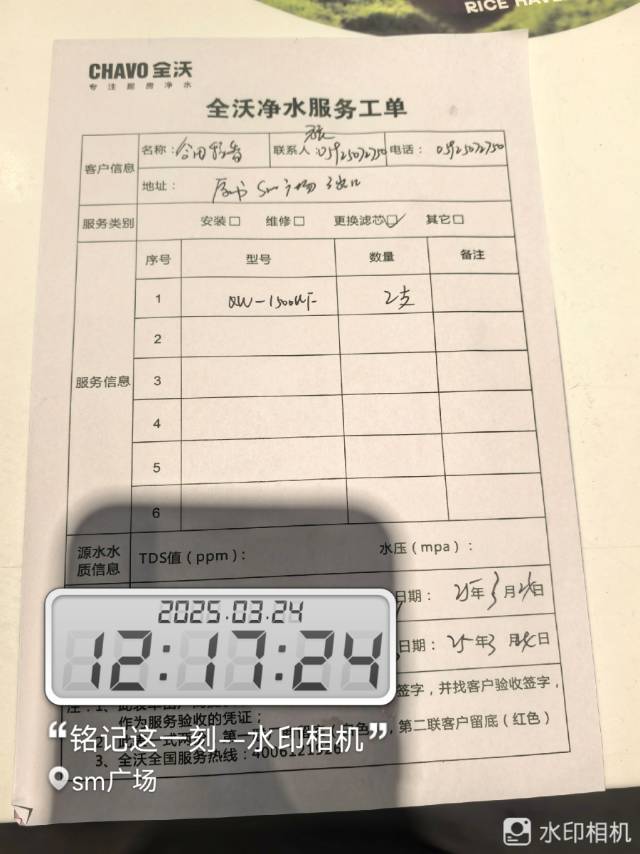 RICE HAVEN
CHAVO 全沃
专注厨房净水
全沃净水服务工单
客户信息
名称：
联系人：05925072750
电话：05925072750
地址：
服务类别
安装□ 维修□ 更换滤芯☑ 其它□
服务信息
序号 型号 数量 备注
1 QW-1500UF 2支
2
3
4
5
6
源水水质信息
TDS值（ppm）：
水压（mpa）：
日期：25年3月24日
日期：25年3月24日
签字，并找客户验收签字，
作为服务验收的凭证；
第二联客户留底（红色）
3、全沃全国服务热线：
2025.03.24
12:17:24
“铭记这一刻－水印相机”
sm广场
水印相机